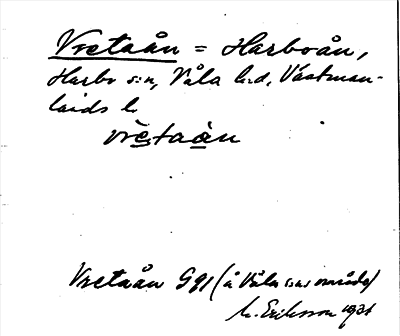 Vretaån = Harboån,
Harbo s:n, Våla h.d, Västman-
lands l.
vrètaàn
Vretaån G91 (å Våla s:ns område)
M. Eriksson 1931